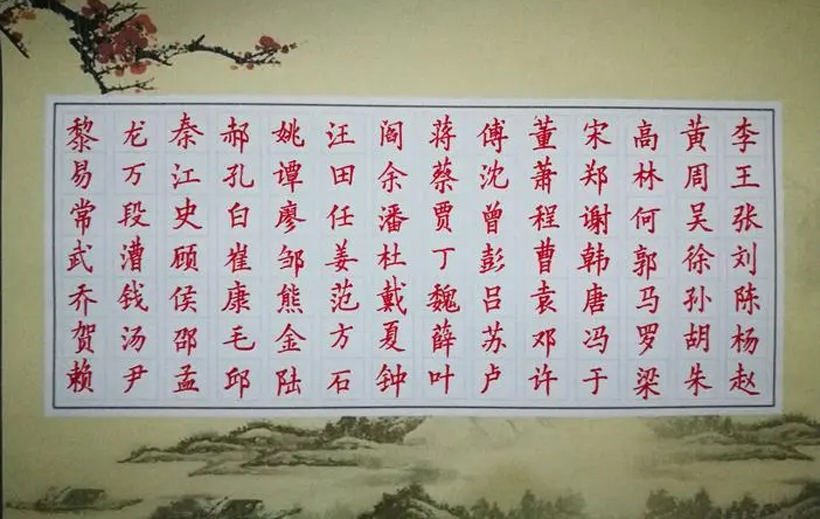 李王张刘陈杨赵
黄周吴徐孙胡朱
高林何郭马罗梁
宋郑谢韩唐冯于
董萧程曹袁邓许
傅沈曾彭吕苏卢
蒋蔡贾丁魏薛叶
阎余潘杜戴夏钟
汪田任姜范方石
姚谭廖邹熊金陆
郝孔白崔康毛邱
秦江史顾侯邵孟
龙万段漕钱汤尹
黎易常武乔贺赖